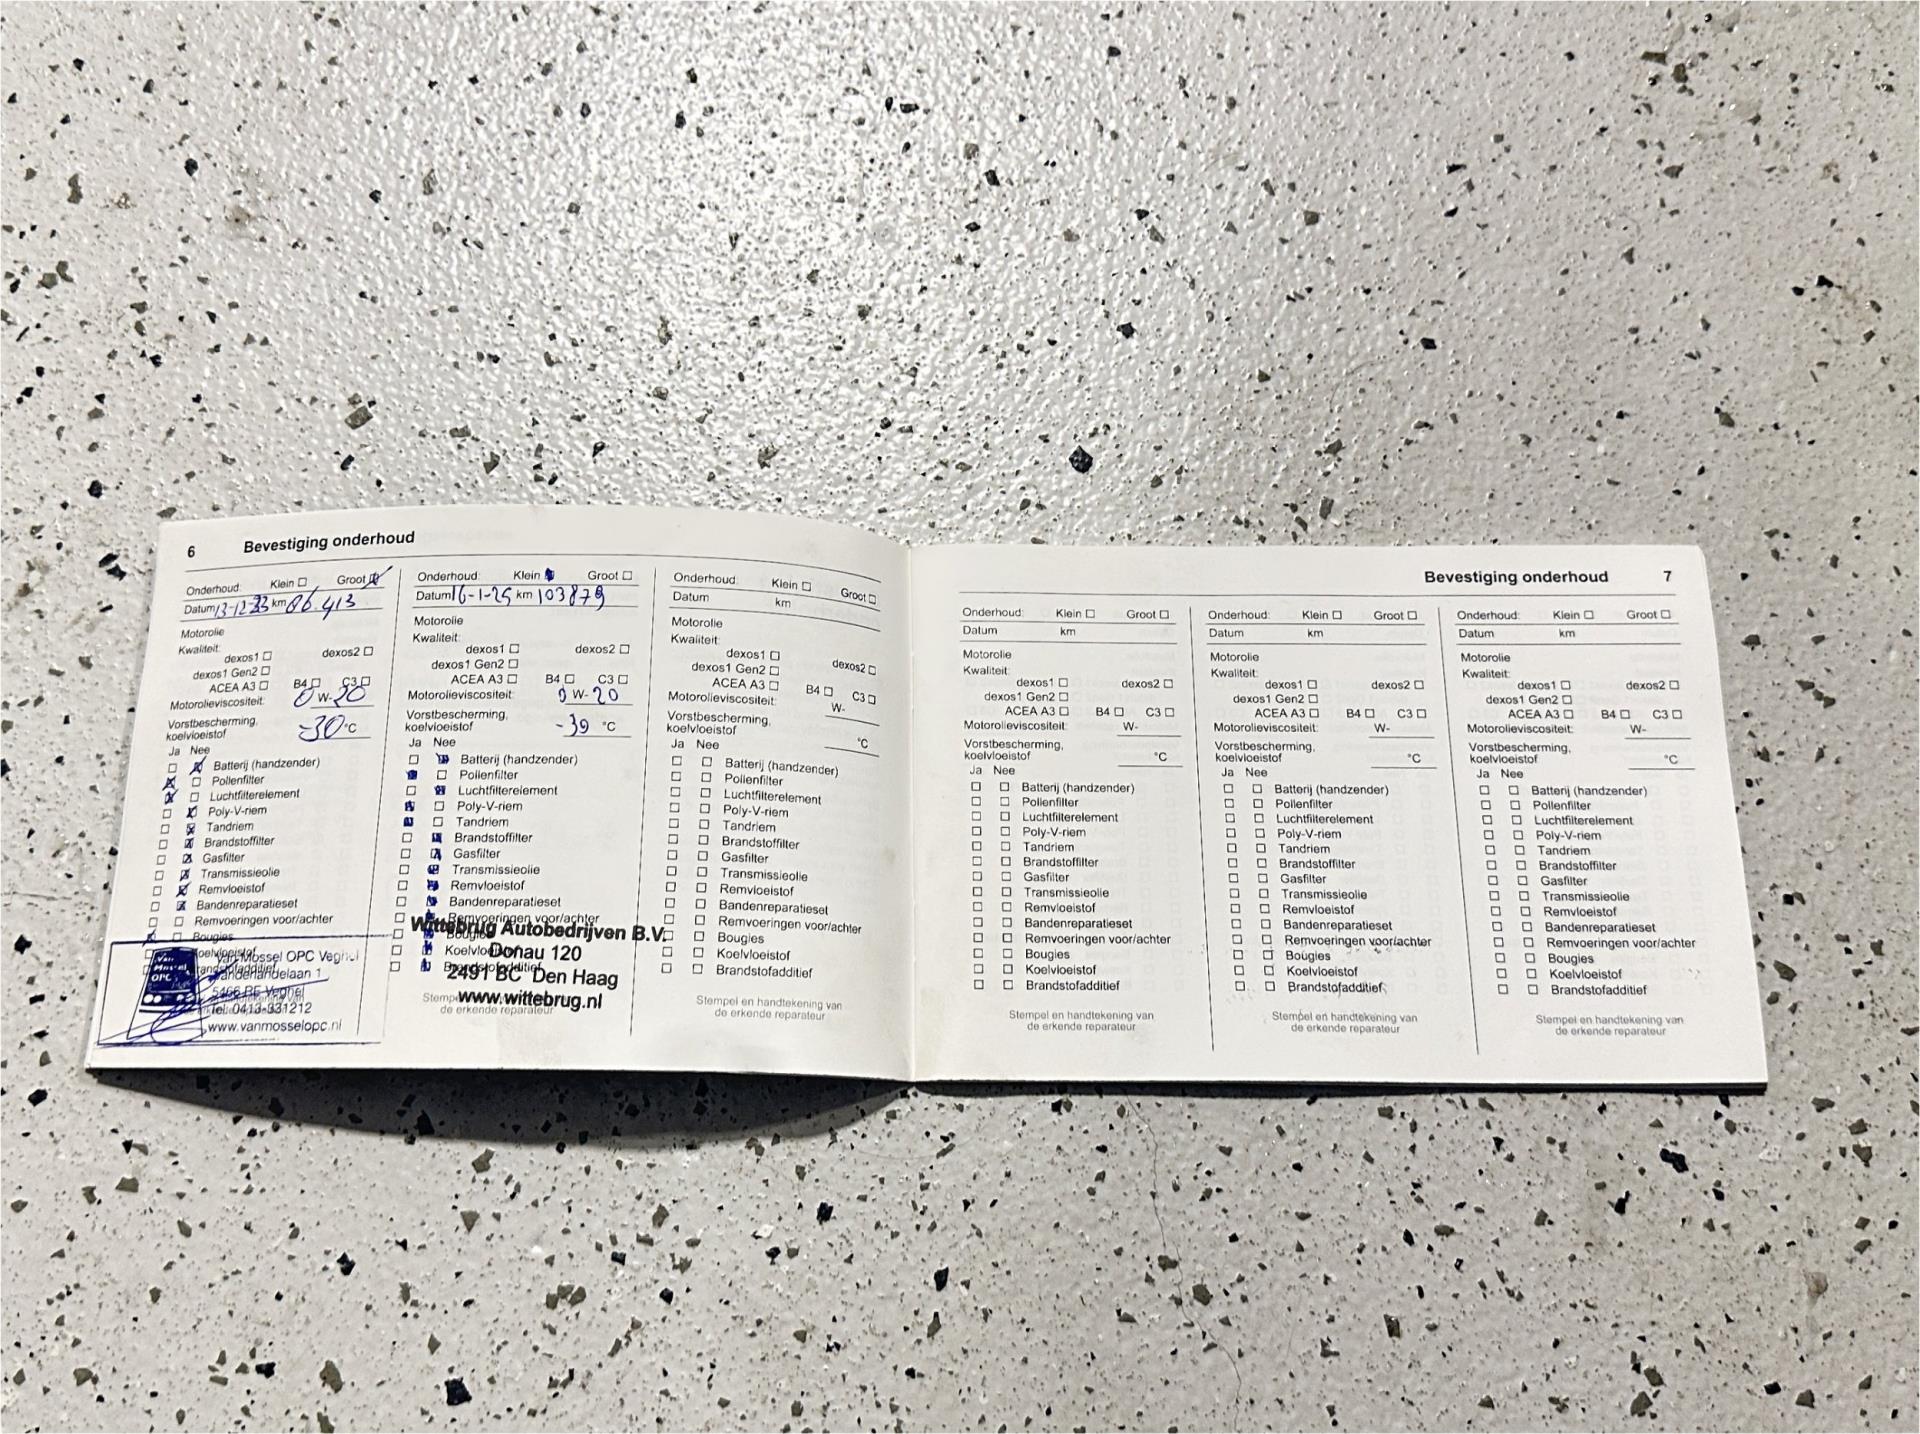 6 Bevestiging onderhoud
Onderhoud: Klein ☐ Groot ☒
Datum 13-12-23 km 86.413
Motorolie
Kwaliteit:
dexos1 ☐ dexos2 ☐
dexos1 Gen2 ☐
ACEA A3 ☐ B4 ☐ C3 ☐
Motorolieviscositeit: 0 W- 20
Vorstbescherming,
koelvloeistof -30 °C
Ja Nee
☐ ☒ Batterij (handzender)
☒ ☐ Pollenfilter
☒ ☐ Luchtfilterelement
☐ ☒ Poly-V-riem
☐ ☒ Tandriem
☐ ☒ Brandstoffilter
☐ ☒ Gasfilter
☐ ☒ Transmissieolie
☐ ☒ Remvloeistof
☐ ☒ Bandenreparatieset
☐ ☐ Remvoeringen voor/achter
☒ ☐ Bougies
Koelvloeistof
Brandstofadditief
Van Mossel OPC
Van Mossel OPC Veghel
5466 RE Veghel
Tel. 0413-331212
www.vanmosselopc.nl
Onderhoud: Klein ☒ Groot ☐
Datum 16-1-25 km 103879
Motorolie
Kwaliteit:
dexos1 ☐ dexos2 ☐
dexos1 Gen2 ☐
ACEA A3 ☐ B4 ☐ C3 ☐
Motorolieviscositeit: 0 W- 20
Vorstbescherming,
koelvloeistof -39 °C
Ja Nee
☐ ☒ Batterij (handzender)
☒ ☐ Pollenfilter
☐ ☒ Luchtfilterelement
☒ ☐ Poly-V-riem
☒ ☐ Tandriem
☐ ☒ Brandstoffilter
☐ ☒ Gasfilter
☐ ☒ Transmissieolie
☐ ☒ Remvloeistof
☐ ☒ Bandenreparatieset
☐ ☒ Remvoeringen voor/achter
☐ ☒ Bougies
☐ ☒ Koelvloeistof
☐ ☒ Brandstofadditief
Wittebrug Autobedrijven B.V.
Donau 120
2491 BC Den Haag
www.wittebrug.nl
de erkende reparateur
Onderhoud: Klein ☐ Groot ☐
Datum km
Motorolie
Kwaliteit:
dexos1 ☐ dexos2 ☐
dexos1 Gen2 ☐
ACEA A3 ☐ B4 ☐ C3 ☐
Motorolieviscositeit: W-
Vorstbescherming,
koelvloeistof °C
Ja Nee
☐ ☐ Batterij (handzender)
☐ ☐ Pollenfilter
☐ ☐ Luchtfilterelement
☐ ☐ Poly-V-riem
☐ ☐ Tandriem
☐ ☐ Brandstoffilter
☐ ☐ Gasfilter
☐ ☐ Transmissieolie
☐ ☐ Remvloeistof
☐ ☐ Bandenreparatieset
☐ ☐ Remvoeringen voor/achter
☐ ☐ Bougies
☐ ☐ Koelvloeistof
☐ ☐ Brandstofadditief
Stempel en handtekening van
de erkende reparateur
Bevestiging onderhoud 7
Onderhoud: Klein ☐ Groot ☐
Datum km
Motorolie
Kwaliteit:
dexos1 ☐ dexos2 ☐
dexos1 Gen2 ☐
ACEA A3 ☐ B4 ☐ C3 ☐
Motorolieviscositeit: W-
Vorstbescherming,
koelvloeistof °C
Ja Nee
☐ ☐ Batterij (handzender)
☐ ☐ Pollenfilter
☐ ☐ Luchtfilterelement
☐ ☐ Poly-V-riem
☐ ☐ Tandriem
☐ ☐ Brandstoffilter
☐ ☐ Gasfilter
☐ ☐ Transmissieolie
☐ ☐ Remvloeistof
☐ ☐ Bandenreparatieset
☐ ☐ Remvoeringen voor/achter
☐ ☐ Bougies
☐ ☐ Koelvloeistof
☐ ☐ Brandstofadditief
Stempel en handtekening van
de erkende reparateur
Onderhoud: Klein ☐ Groot ☐
Datum km
Motorolie
Kwaliteit:
dexos1 ☐ dexos2 ☐
dexos1 Gen2 ☐
ACEA A3 ☐ B4 ☐ C3 ☐
Motorolieviscositeit: W-
Vorstbescherming,
koelvloeistof °C
Ja Nee
☐ ☐ Batterij (handzender)
☐ ☐ Pollenfilter
☐ ☐ Luchtfilterelement
☐ ☐ Poly-V-riem
☐ ☐ Tandriem
☐ ☐ Brandstoffilter
☐ ☐ Gasfilter
☐ ☐ Transmissieolie
☐ ☐ Remvloeistof
☐ ☐ Bandenreparatieset
☐ ☐ Remvoeringen voor/achter
☐ ☐ Bougies
☐ ☐ Koelvloeistof
☐ ☐ Brandstofadditief
Stempel en handtekening van
de erkende reparateur
Onderhoud: Klein ☐ Groot ☐
Datum km
Motorolie
Kwaliteit:
dexos1 ☐ dexos2 ☐
dexos1 Gen2 ☐
ACEA A3 ☐ B4 ☐ C3 ☐
Motorolieviscositeit: W-
Vorstbescherming,
koelvloeistof °C
Ja Nee
☐ ☐ Batterij (handzender)
☐ ☐ Pollenfilter
☐ ☐ Luchtfilterelement
☐ ☐ Poly-V-riem
☐ ☐ Tandriem
☐ ☐ Brandstoffilter
☐ ☐ Gasfilter
☐ ☐ Transmissieolie
☐ ☐ Remvloeistof
☐ ☐ Bandenreparatieset
☐ ☐ Remvoeringen voor/achter
☐ ☐ Bougies
☐ ☐ Koelvloeistof
☐ ☐ Brandstofadditief
Stempel en handtekening van
de erkende reparateur